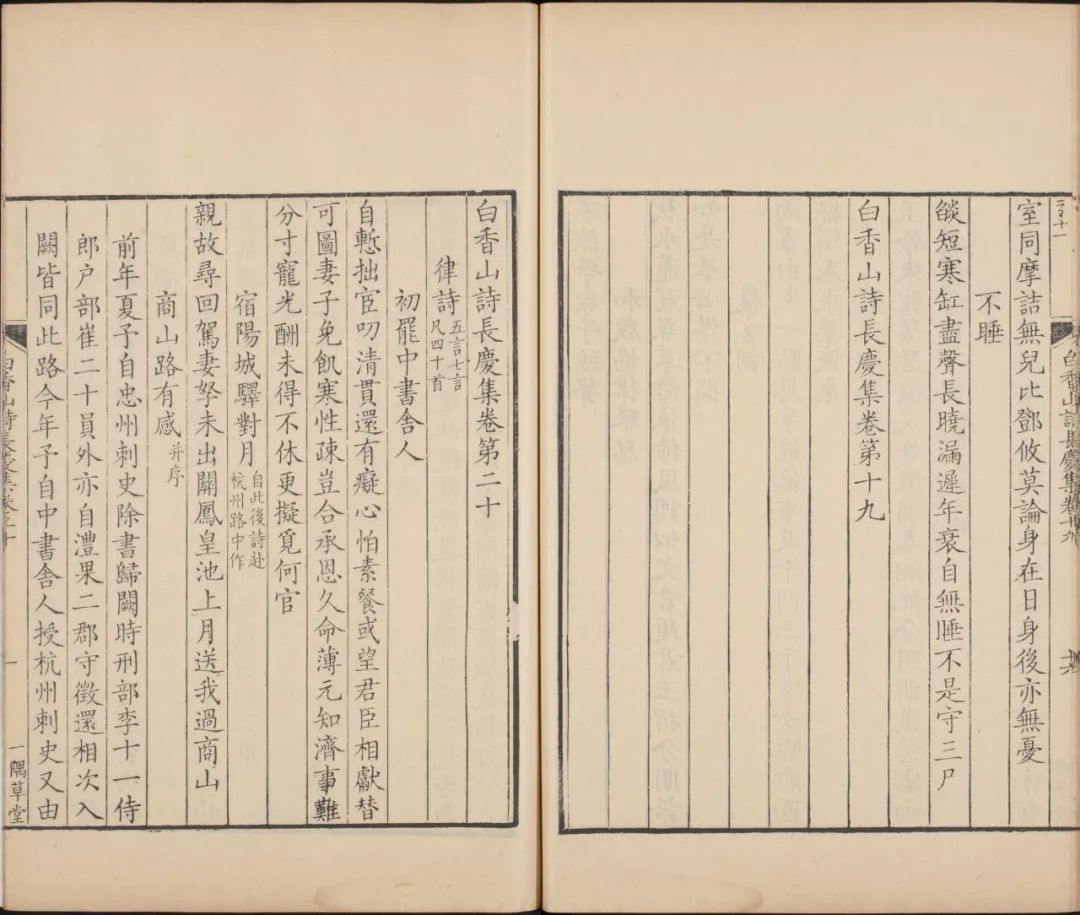 室同摩詰無兒比鄧攸莫論身在日身後亦無憂
不睡
燄短寒缸盡聲長曉漏遲年衰自無睡不是守三尸
白香山詩長慶集卷第十九
白香山詩長慶集卷第二十
律詩 五言七言凡四十首
初罷中書舍人
自慙拙宦叨清貫還有癡心怕素餐或望君臣相獻替
可圖妻子免飢寒性疎豈合承恩久命薄元知濟事難
分寸寵光酬未得不休更擬覓何官
宿陽城驛對月 自此後詩赴杭州路中作
親故尋回駕妻孥未出關鳳皇池上月送我過商山
商山路有感 并序
前年夏予自忠州刺史除書歸闕時刑部李十一侍
郎户部崔二十員外亦自澧果二郡守徵還相次入
闕皆同此路今年予自中書舍人授杭州刺史又由
一隅草堂